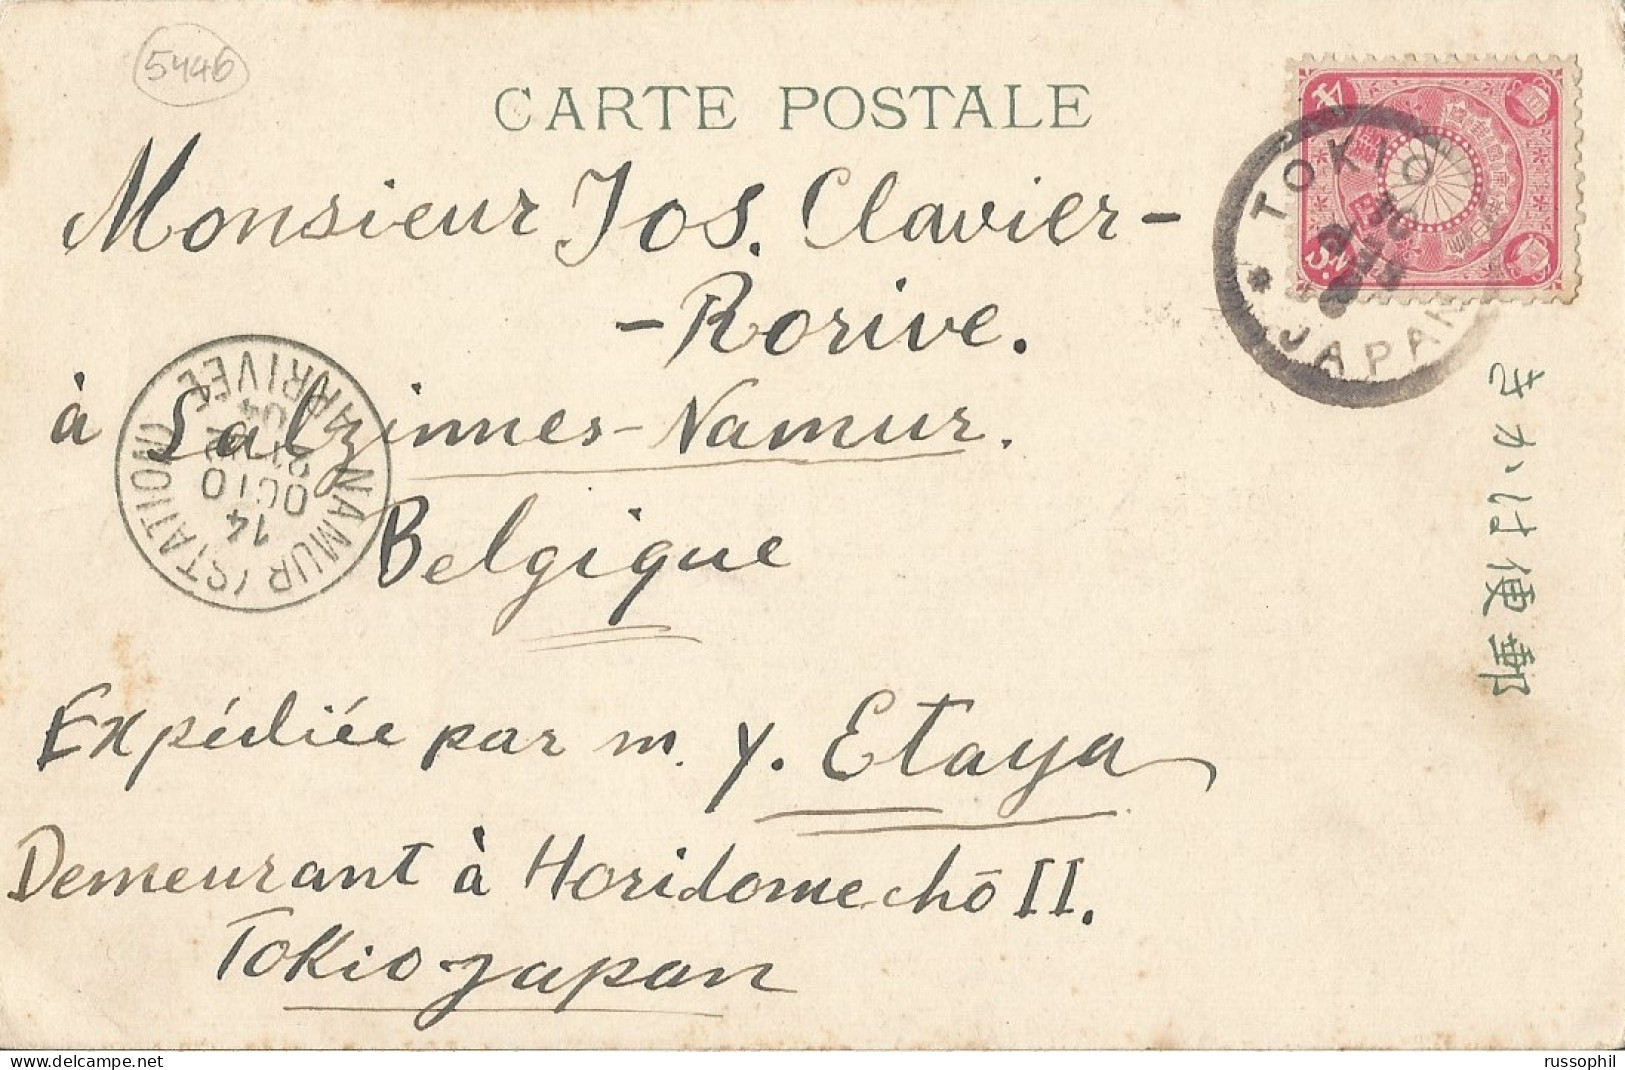 5446
CARTE POSTALE
Monsieur Jos. Clavier-
-Rorive.
à Salzinnes-Namur.
Belgique
Expédiée par m. y. Etaya
Demeurant à Horidome chō II.
Tokio Japan
TOKIO
JAPAN
NAMUR (STATION)
ARRIVÉE
14
OCTO
04
4 Sn.
郵便はかき
russophil